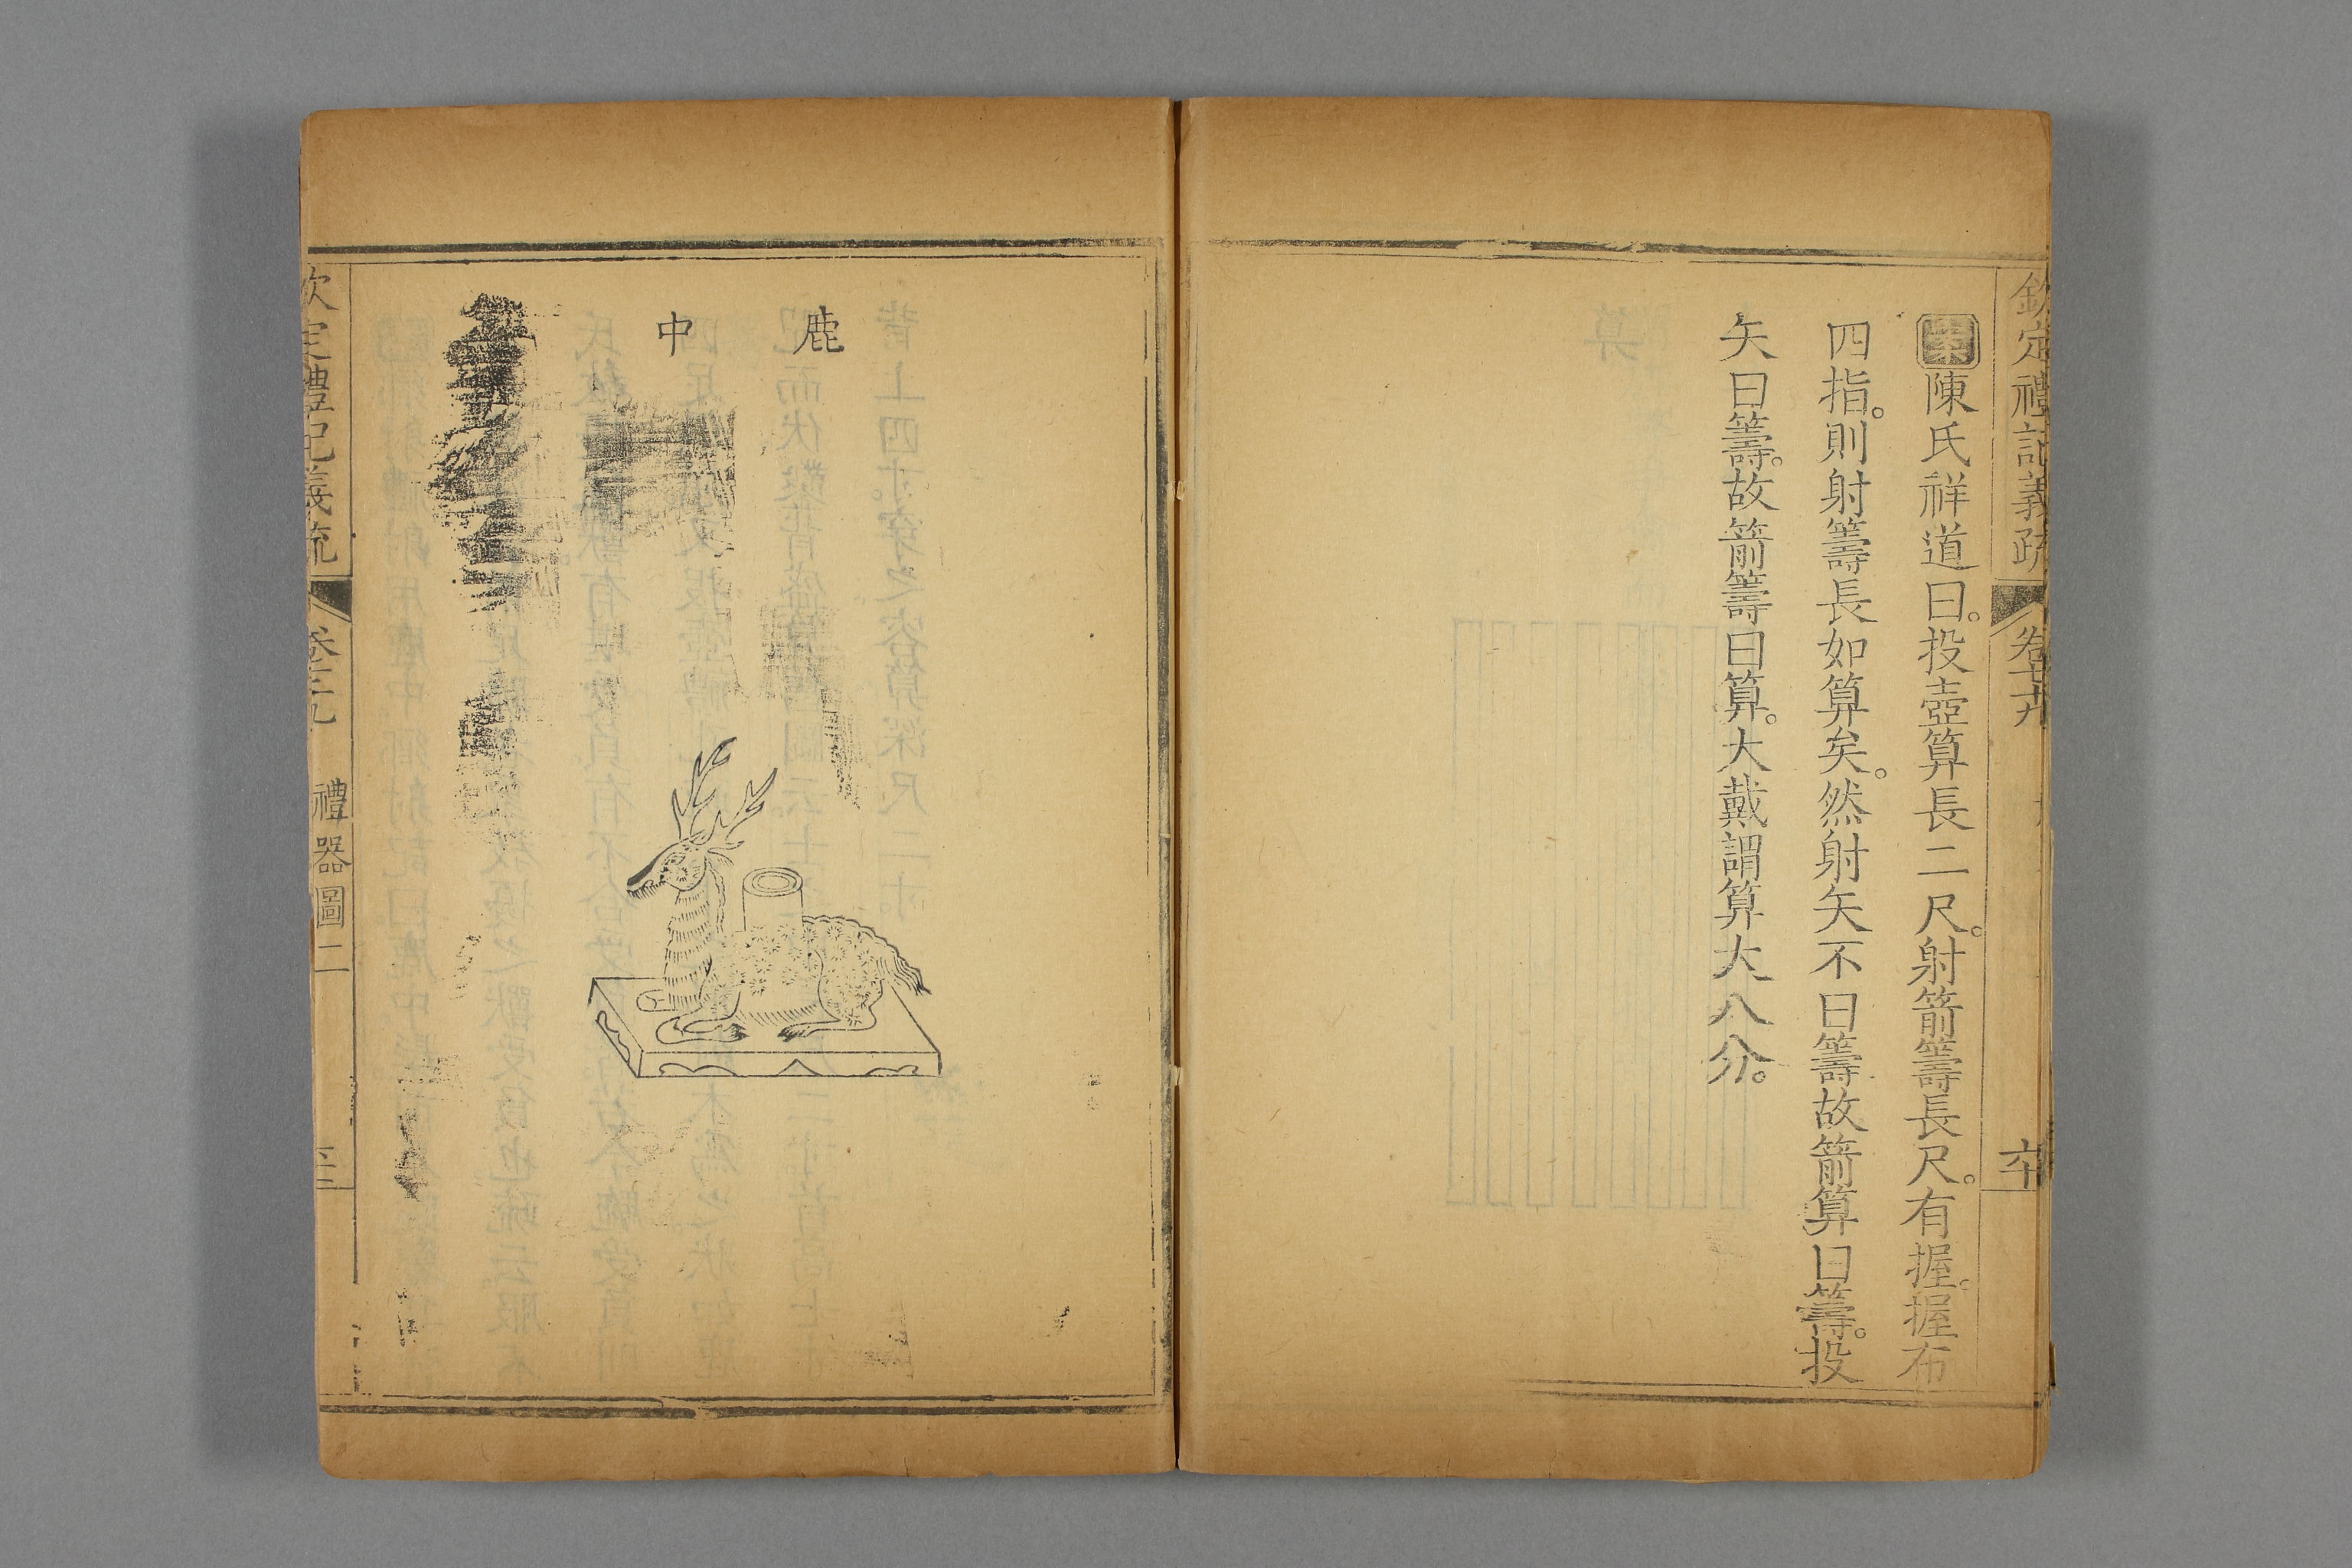 欽定禮記義疏
卷七十九
六十
案陳氏祥道曰。投壺算長二尺。射箭籌長尺。有握。握布
四指。則射籌長如算矣。然射矢不曰籌故箭算曰籌。投
矢曰籌。故箭籌曰算。大戴謂算大八分。
鹿
中
欽定禮記義疏
禮器圖二